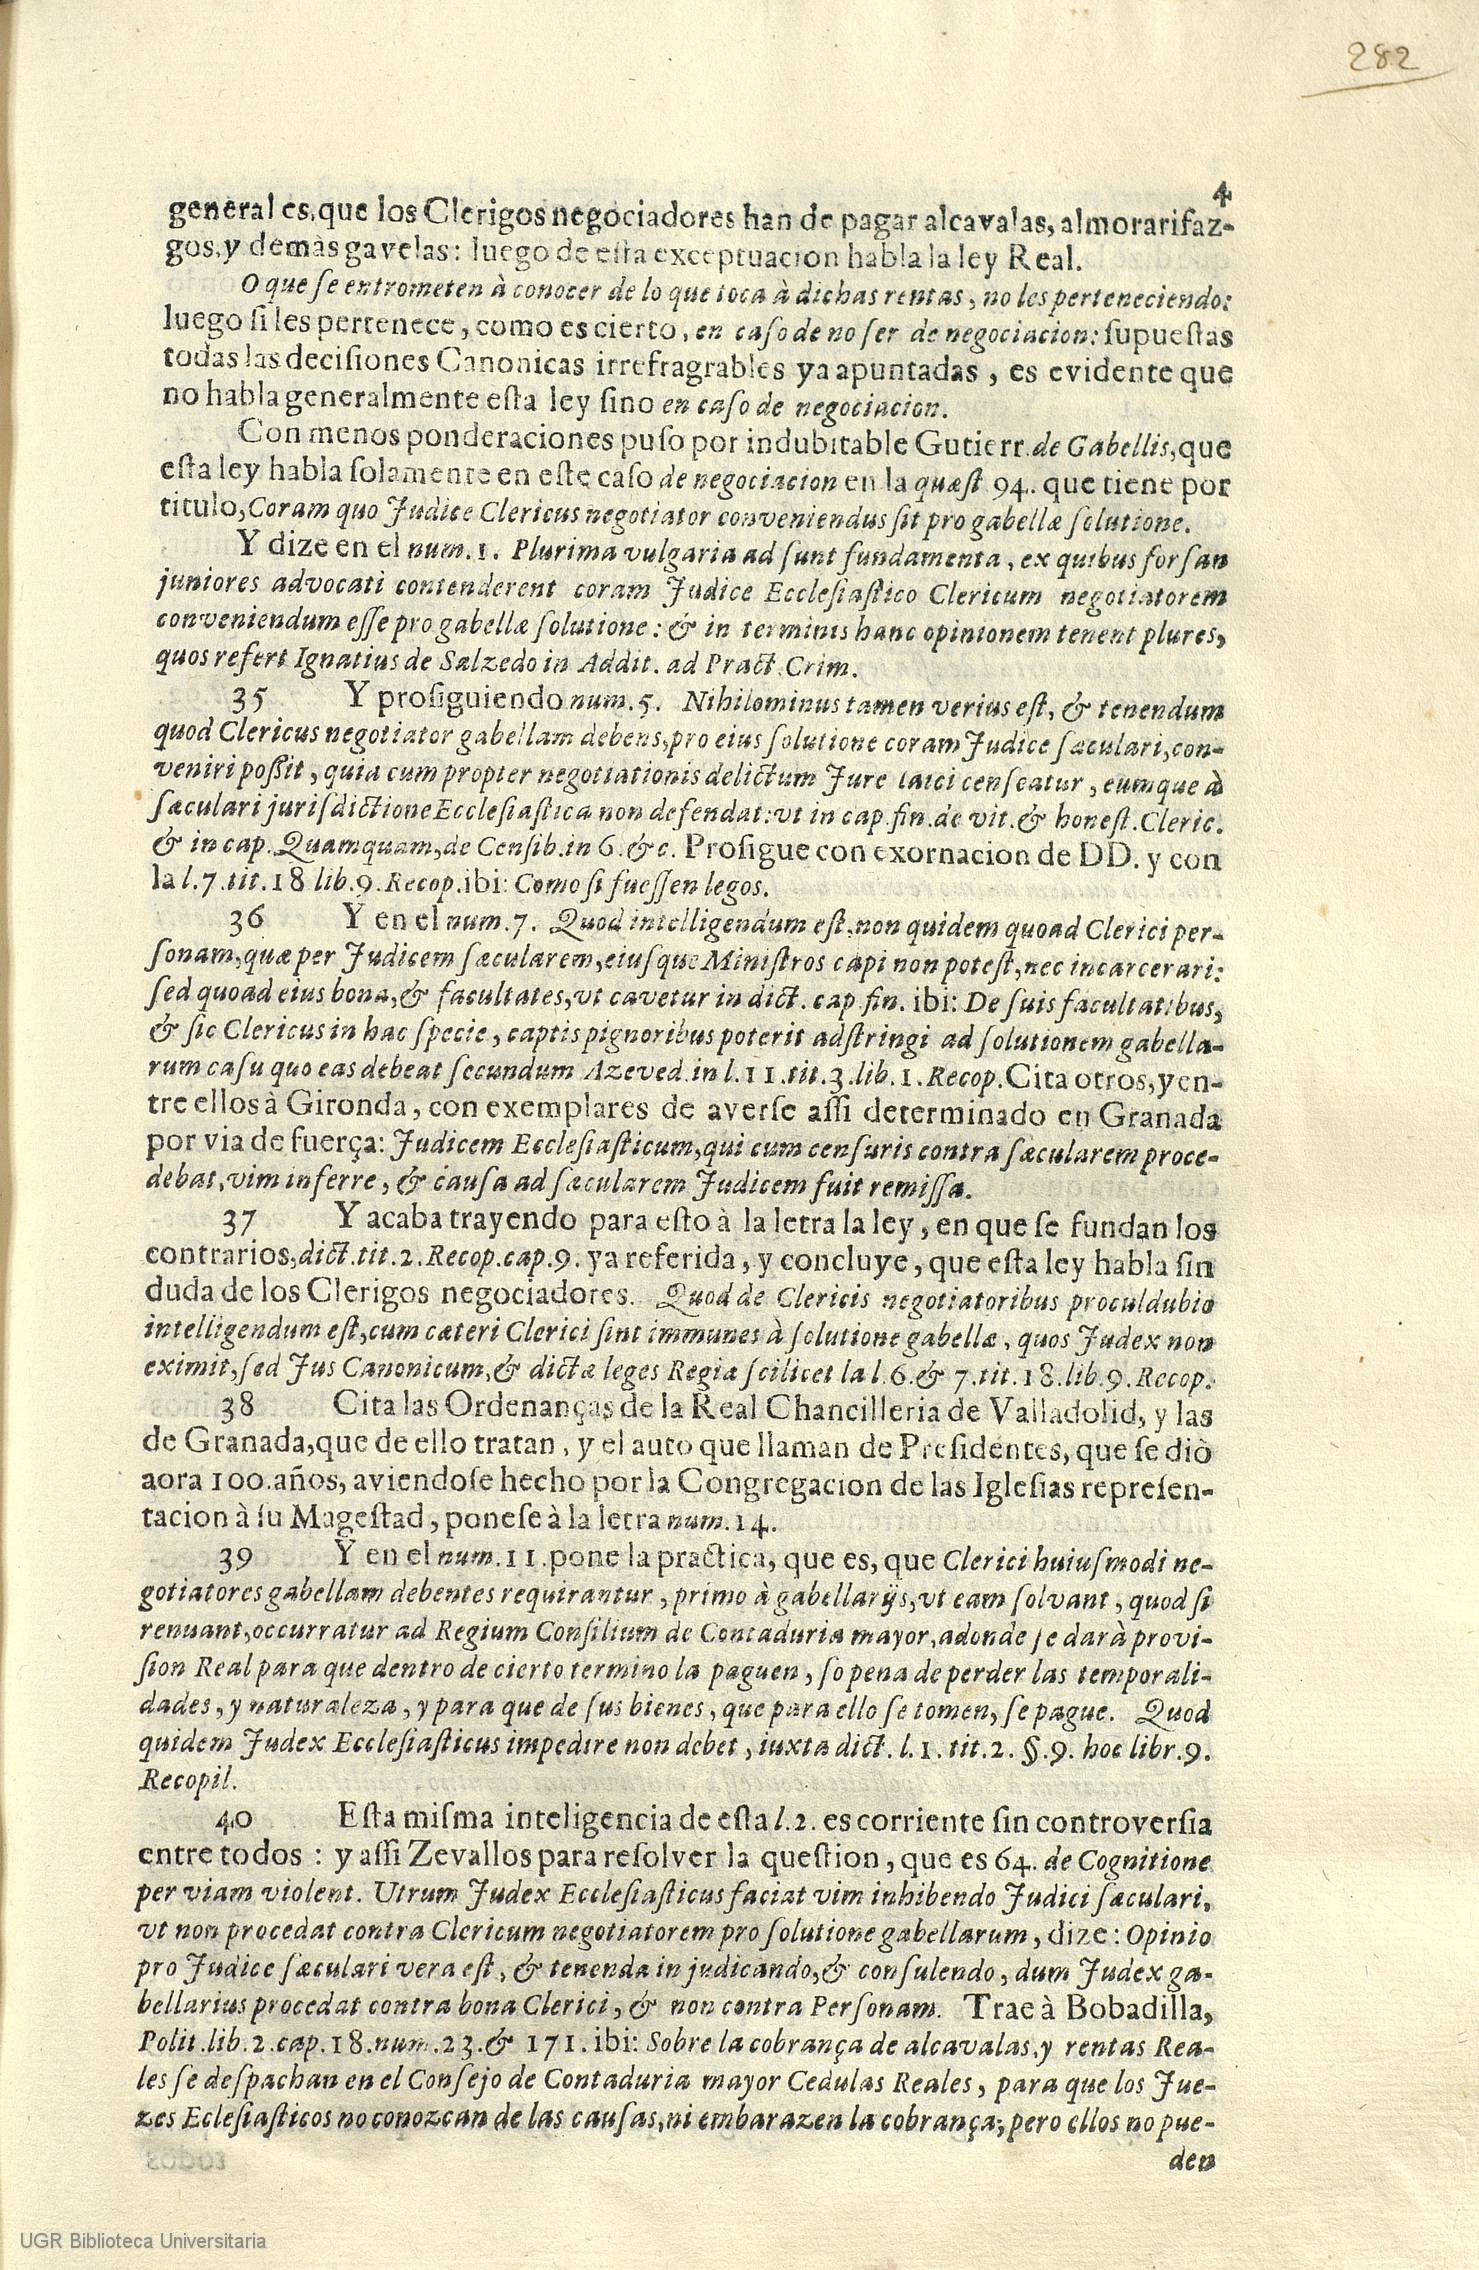 282
4
general es, que los Clerigos negociadores han de pagar alcavalas, almorarifaz-
gos, y demàs gavelas: luego de esta exceptuacion habla la ley Real.
O que se entrometen à conocer de lo que toca à dichas rentas, no les perteneciendo:
luego si les pertenece, como es cierto, en caso de no ser de negociacion: supuestas
todas las decisiones Canonicas irrefragrables ya apuntadas, es evidente que
no habla generalmente esta ley sino en caso de negociacion.
Con menos ponderaciones puso por indubitable Gutierr. de Gabellis, que
esta ley habla solamente en este caso de negociacion en la quæst 94. que tiene por
titulo, Coram quo Judice Clericus negotiator conveniendus sit pro gabellæ solutione.
Y dize en el num. 1. Plurima vulgaria ad sunt fundamenta, ex quibus forsan
juniores advocati contenderent coram Judice Ecclesiastico Clericum negotiatorem
conveniendum esse pro gabellæ solutione: & in terminis hanc opinionem tenent plures,
quos refert Ignatius de Salzedo in Addit. ad Pract. Crim.
35 Y prosiguiendo num. 5. Nihilominus tamen verius est, & tenendum
quod Clericus negotiator gabellam debens, pro eius solutione coram Judice sæculari, con-
veniri possit, quia cum propter negotiationis delictum Jure laici censeatur, eumque à
sæculari jurisdictione Ecclesiastica non defendat: vt in cap. fin. de vit. & honest. Cleric.
& in cap. Quamquam, de Censib. in 6. &c. Prosigue con exornacion de DD. y con
la l. 7. tit. 18 lib. 9. Recop. ibi: Como si fuessen legos.
36 Y en el num. 7. Quod intelligendum est, non quidem quoad Clerici per-
sonam, quæ per Judicem sæcularem, eiusque Ministros capi non potest, nec incarcerari:
sed quoad eius bona, & facultates, vt cavetur in dict. cap. fin. ibi: De suis facultatibus,
& sic Clericus in hac specie, captis pignoribus poterit adstringi ad solutionem gabella-
rum casu quo eas debeat secundum Azeved. in l. 11. tit. 3. lib. 1. Recop. Cita otros, y en-
tre ellos à Gironda, con exemplares de averse assi determinado en Granada
por via de fuerça: Judicem Ecclesiasticum, qui cum censuris contra sæcularem proce-
debat, vim inferre, & causa ad sæcularem Judicem fuit remissa.
37 Y acaba trayendo para esto à la letra la ley, en que se fundan los
contrarios, dict. tit. 2. Recop. cap. 9. ya referida, y concluye, que esta ley habla sin
duda de los Clerigos negociadores. Quod de Clericis negotiatoribus proculdubio
intelligendum est, cum cæteri Clerici sint immunes à solutione gabellæ, quos Judex non
eximit, sed Jus Canonicum, & dictæ leges Regia scilicet la l. 6. & 7. tit. 18. lib. 9. Recop.
38 Cita las Ordenanças de la Real Chancilleria de Valladolid, y las
de Granada, que de ello tratan, y el auto que llaman de Presidentes, que se diò
aora 100. años, aviendose hecho por la Congregacion de las Iglesias represen-
tacion à su Magestad, ponese à la letra num. 14.
39 Y en el num. 11. pone la practica, que es, que Clerici huiusmodi ne-
gotiatores gabellam debentes requirantur, primo à gabellarijs, vt eam solvant, quod si
renuant, occurratur ad Regium Consilium de Contaduria mayor, adonde se darà provi-
sion Real para que dentro de cierto termino la paguen, so pena de perder las temporali-
dades, y naturaleza, y para que de sus bienes, que para ello se tomen, se pague. Quod
quidem Judex Ecclesiasticus impedire non debet, iuxta dict. l. 1. tit. 2. §. 9. hoc libr. 9.
Recopil.
40 Esta misma inteligencia de esta l. 2. es corriente sin controversia
entre todos: y assi Zevallos para resolver la question, que es 64. de Cognitione
per viam violent. Utrum Judex Ecclesiasticus faciat vim inhibendo Judici sæculari,
vt non procedat contra Clericum negotiatorem pro solutione gabellarum, dize: Opinio
pro Judice sæculari vera est, & tenenda in judicando, & consulendo, dum Judex ga-
bellarius procedat contra bona Clerici, & non contra Personam. Trae à Bobadilla,
Polit. lib. 2. cap. 18. num. 23. & 171. ibi: Sobre la cobrança de alcavalas, y rentas Rea-
les se despachan en el Consejo de Contaduria mayor Cedulas Reales, para que los Jue-
zes Eclesiasticos no conozcan de las causas, ni embarazen la cobrança; pero ellos no pue-
den
UGR Biblioteca Universitaria